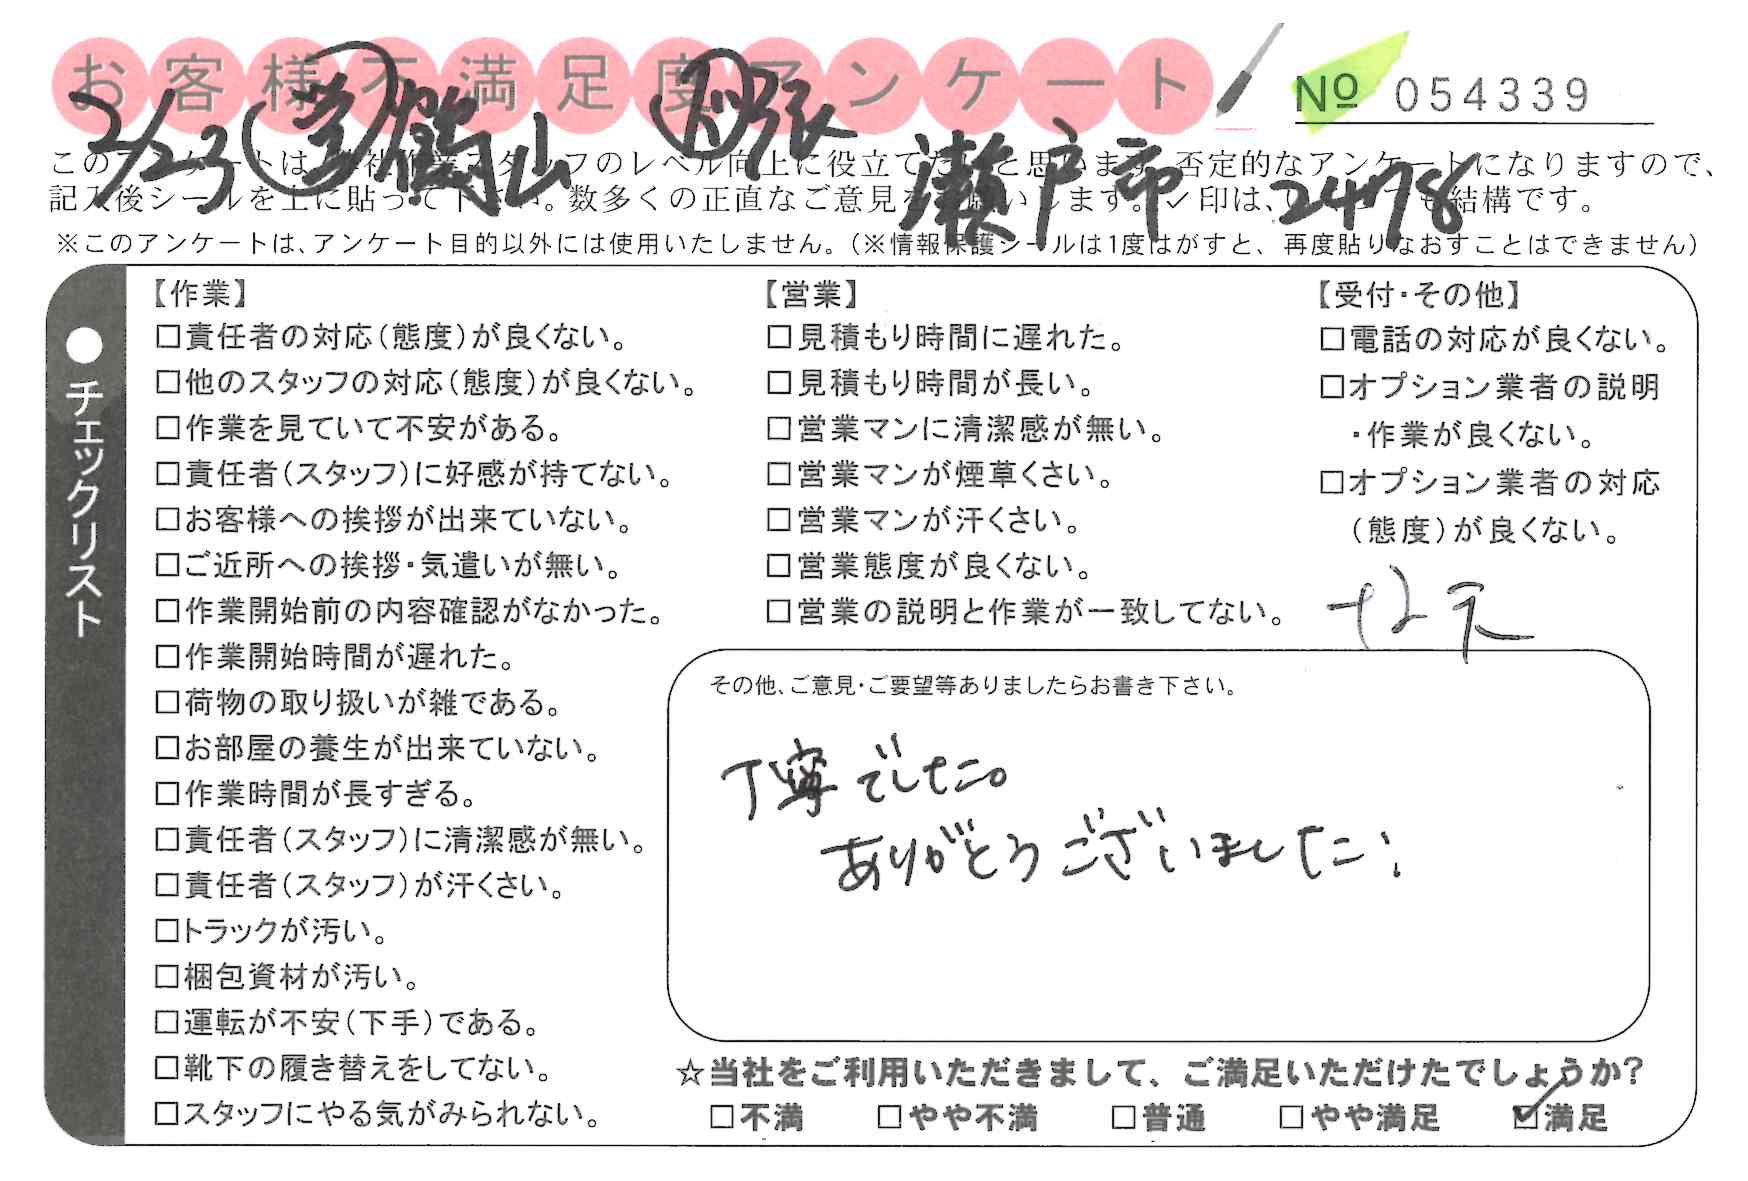 お客様不満足度アンケート
№ 054339
2/23 営 鶴山 下 張 瀬戸市 2478
このアンケートは、弊社作業スタッフのレベル向上に役立てたいと思います。否定的なアンケートになりますので、
記入後シールを上に貼って下さい。数多くの正直なご意見をお願いします。✓印は、いくつでも結構です。
※このアンケートは、アンケート目的以外には使用いたしません。（※情報保護シールは1度はがすと、再度貼りなおすことはできません）
●チェックリスト
【作業】
□責任者の対応（態度）が良くない。
□他のスタッフの対応（態度）が良くない。
□作業を見ていて不安がある。
□責任者（スタッフ）に好感が持てない。
□お客様への挨拶が出来ていない。
□ご近所への挨拶・気遣いが無い。
□作業開始前の内容確認がなかった。
□作業開始時間が遅れた。
□荷物の取り扱いが雑である。
□お部屋の養生が出来ていない。
□作業時間が長すぎる。
□責任者（スタッフ）に清潔感が無い。
□責任者（スタッフ）が汗くさい。
□トラックが汚い。
□梱包資材が汚い。
□運転が不安（下手）である。
□靴下の履き替えをしてない。
□スタッフにやる気がみられない。
【営業】
□見積もり時間に遅れた。
□見積もり時間が長い。
□営業マンに清潔感が無い。
□営業マンが煙草くさい。
□営業マンが汗くさい。
□営業態度が良くない。
□営業の説明と作業が一致してない。
【受付・その他】
□電話の対応が良くない。
□オプション業者の説明
・作業が良くない。
□オプション業者の対応
（態度）が良くない。
その他、ご意見・ご要望等ありましたらお書き下さい。
丁寧でした。
ありがとうございました!
☆当社をご利用いただきまして、ご満足いただけたでしょうか?
□不満 □やや不満 □普通 □やや満足 ☑満足